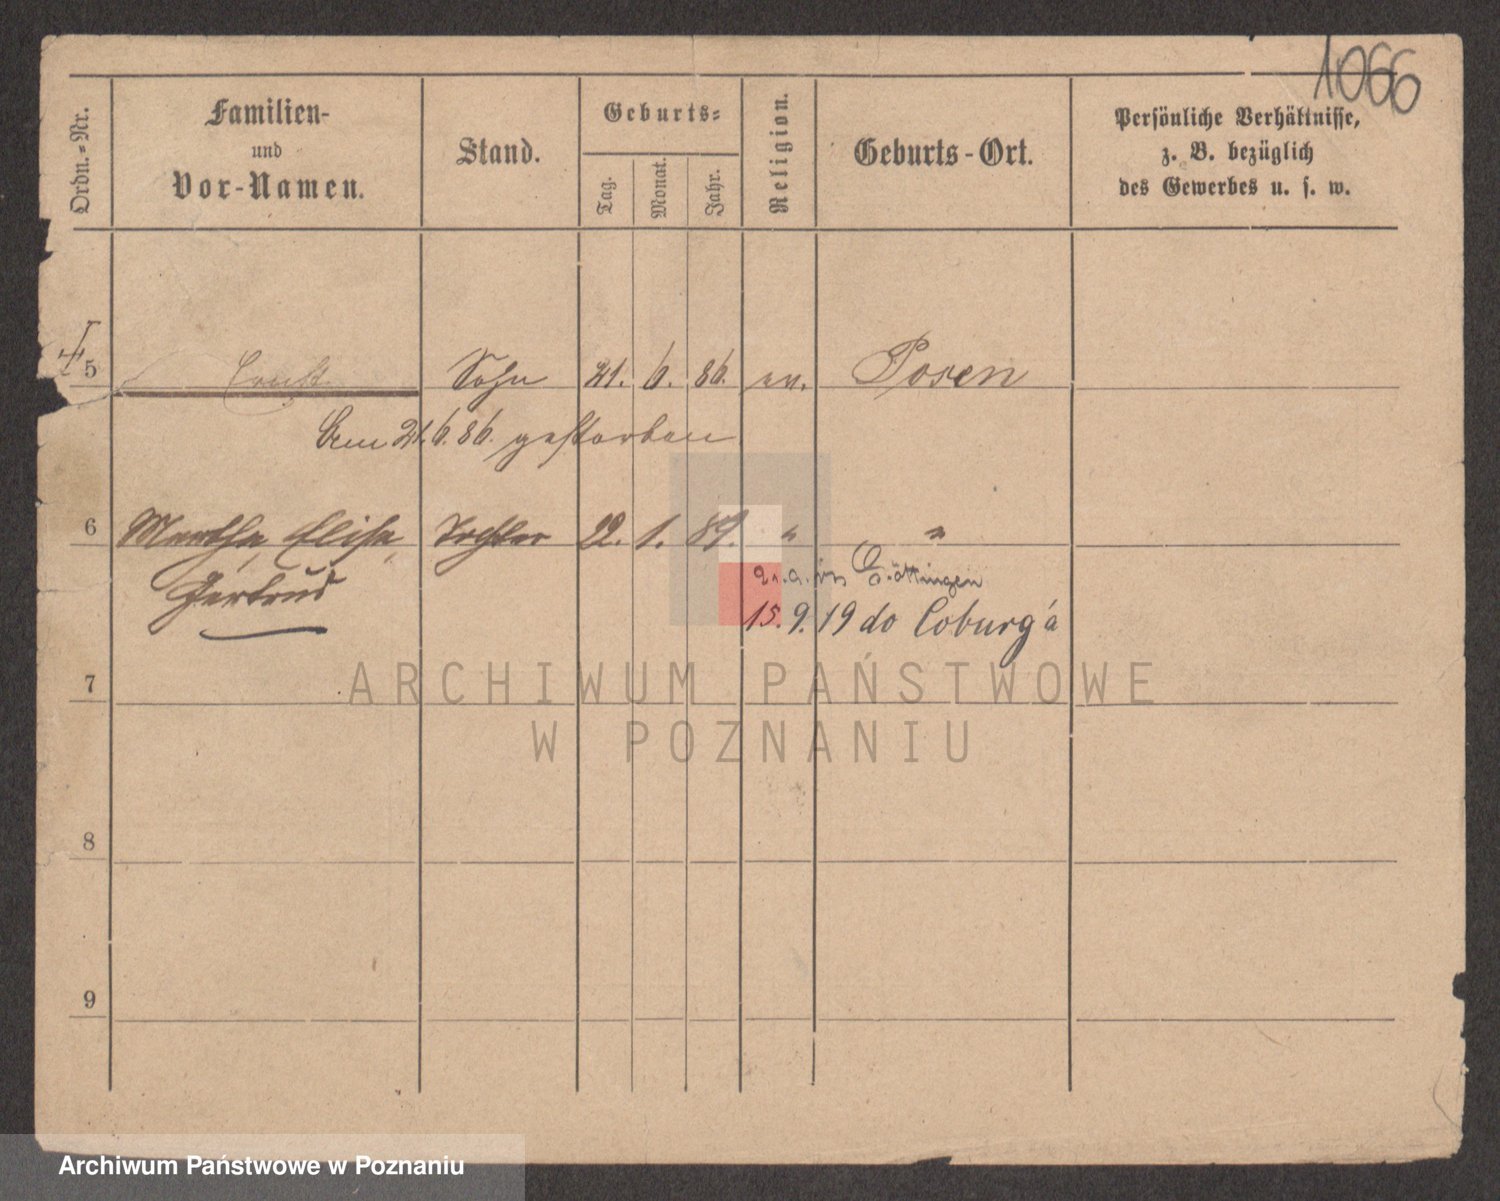 1066
Ordn.-Nr.
Familien-
und
Vor-Namen.
Stand.
Geburts-
Tag.
Monat.
Jahr.
Religion.
Geburts-Ort.
Persönliche Verhältnisse,
z. B. bezüglich
des Gewerbes u. s. w.
5 Ernst Sohn 21. 6. 86. ev. Posen
Am 21.6.86. gestorben
6 Martha, Elise, Tochter 22. 1. 89. " "
Gertrud
in Göttingen
15.9.19 do Coburg'a
7
ARCHIWUM PAŃSTWOWE
W POZNANIU
8
9
Archiwum Państwowe w Poznaniu